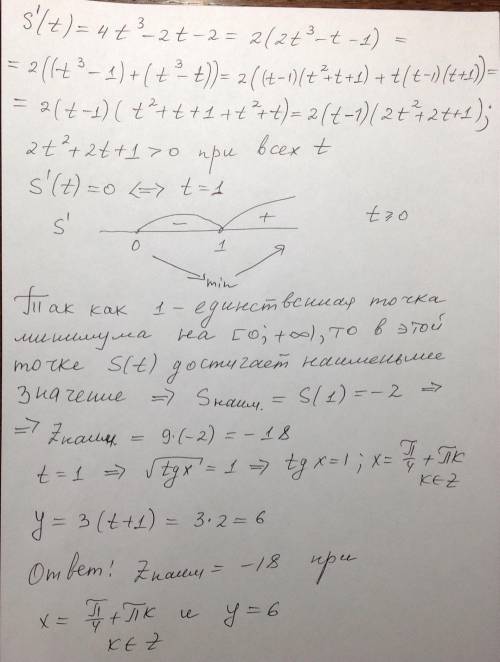 S'(t) = 4t³-2t-2 = 2(2t³-t-1) =
= 2((t³-1)+(t³-t)) = 2((t-1)(t²+t+1)+t(t-1)(t+1)) =
= 2(t-1)(t²+t+1+t²+t) = 2(t-1)(2t²+2t+1);
2t²+2t+1>0 при всех t
S'(t)=0 <=> t=1
S' - + t≥0
0 1
min
Так как 1 - единственная точка
минимума на [0;+∞), то в этой
точке S(t) достигает наименьшее
значение => Sнаим. = S(1) = -2 =>
=> Zнаим. = 9·(-2) = -18
t=1 => √tgx = 1 => tg x=1; x= π/4 + πk
k∈Z
y = 3(t+1) = 3·2 = 6
Ответ: Zнаим = -18 при
x = π/4 + πk и y=6
k∈Z